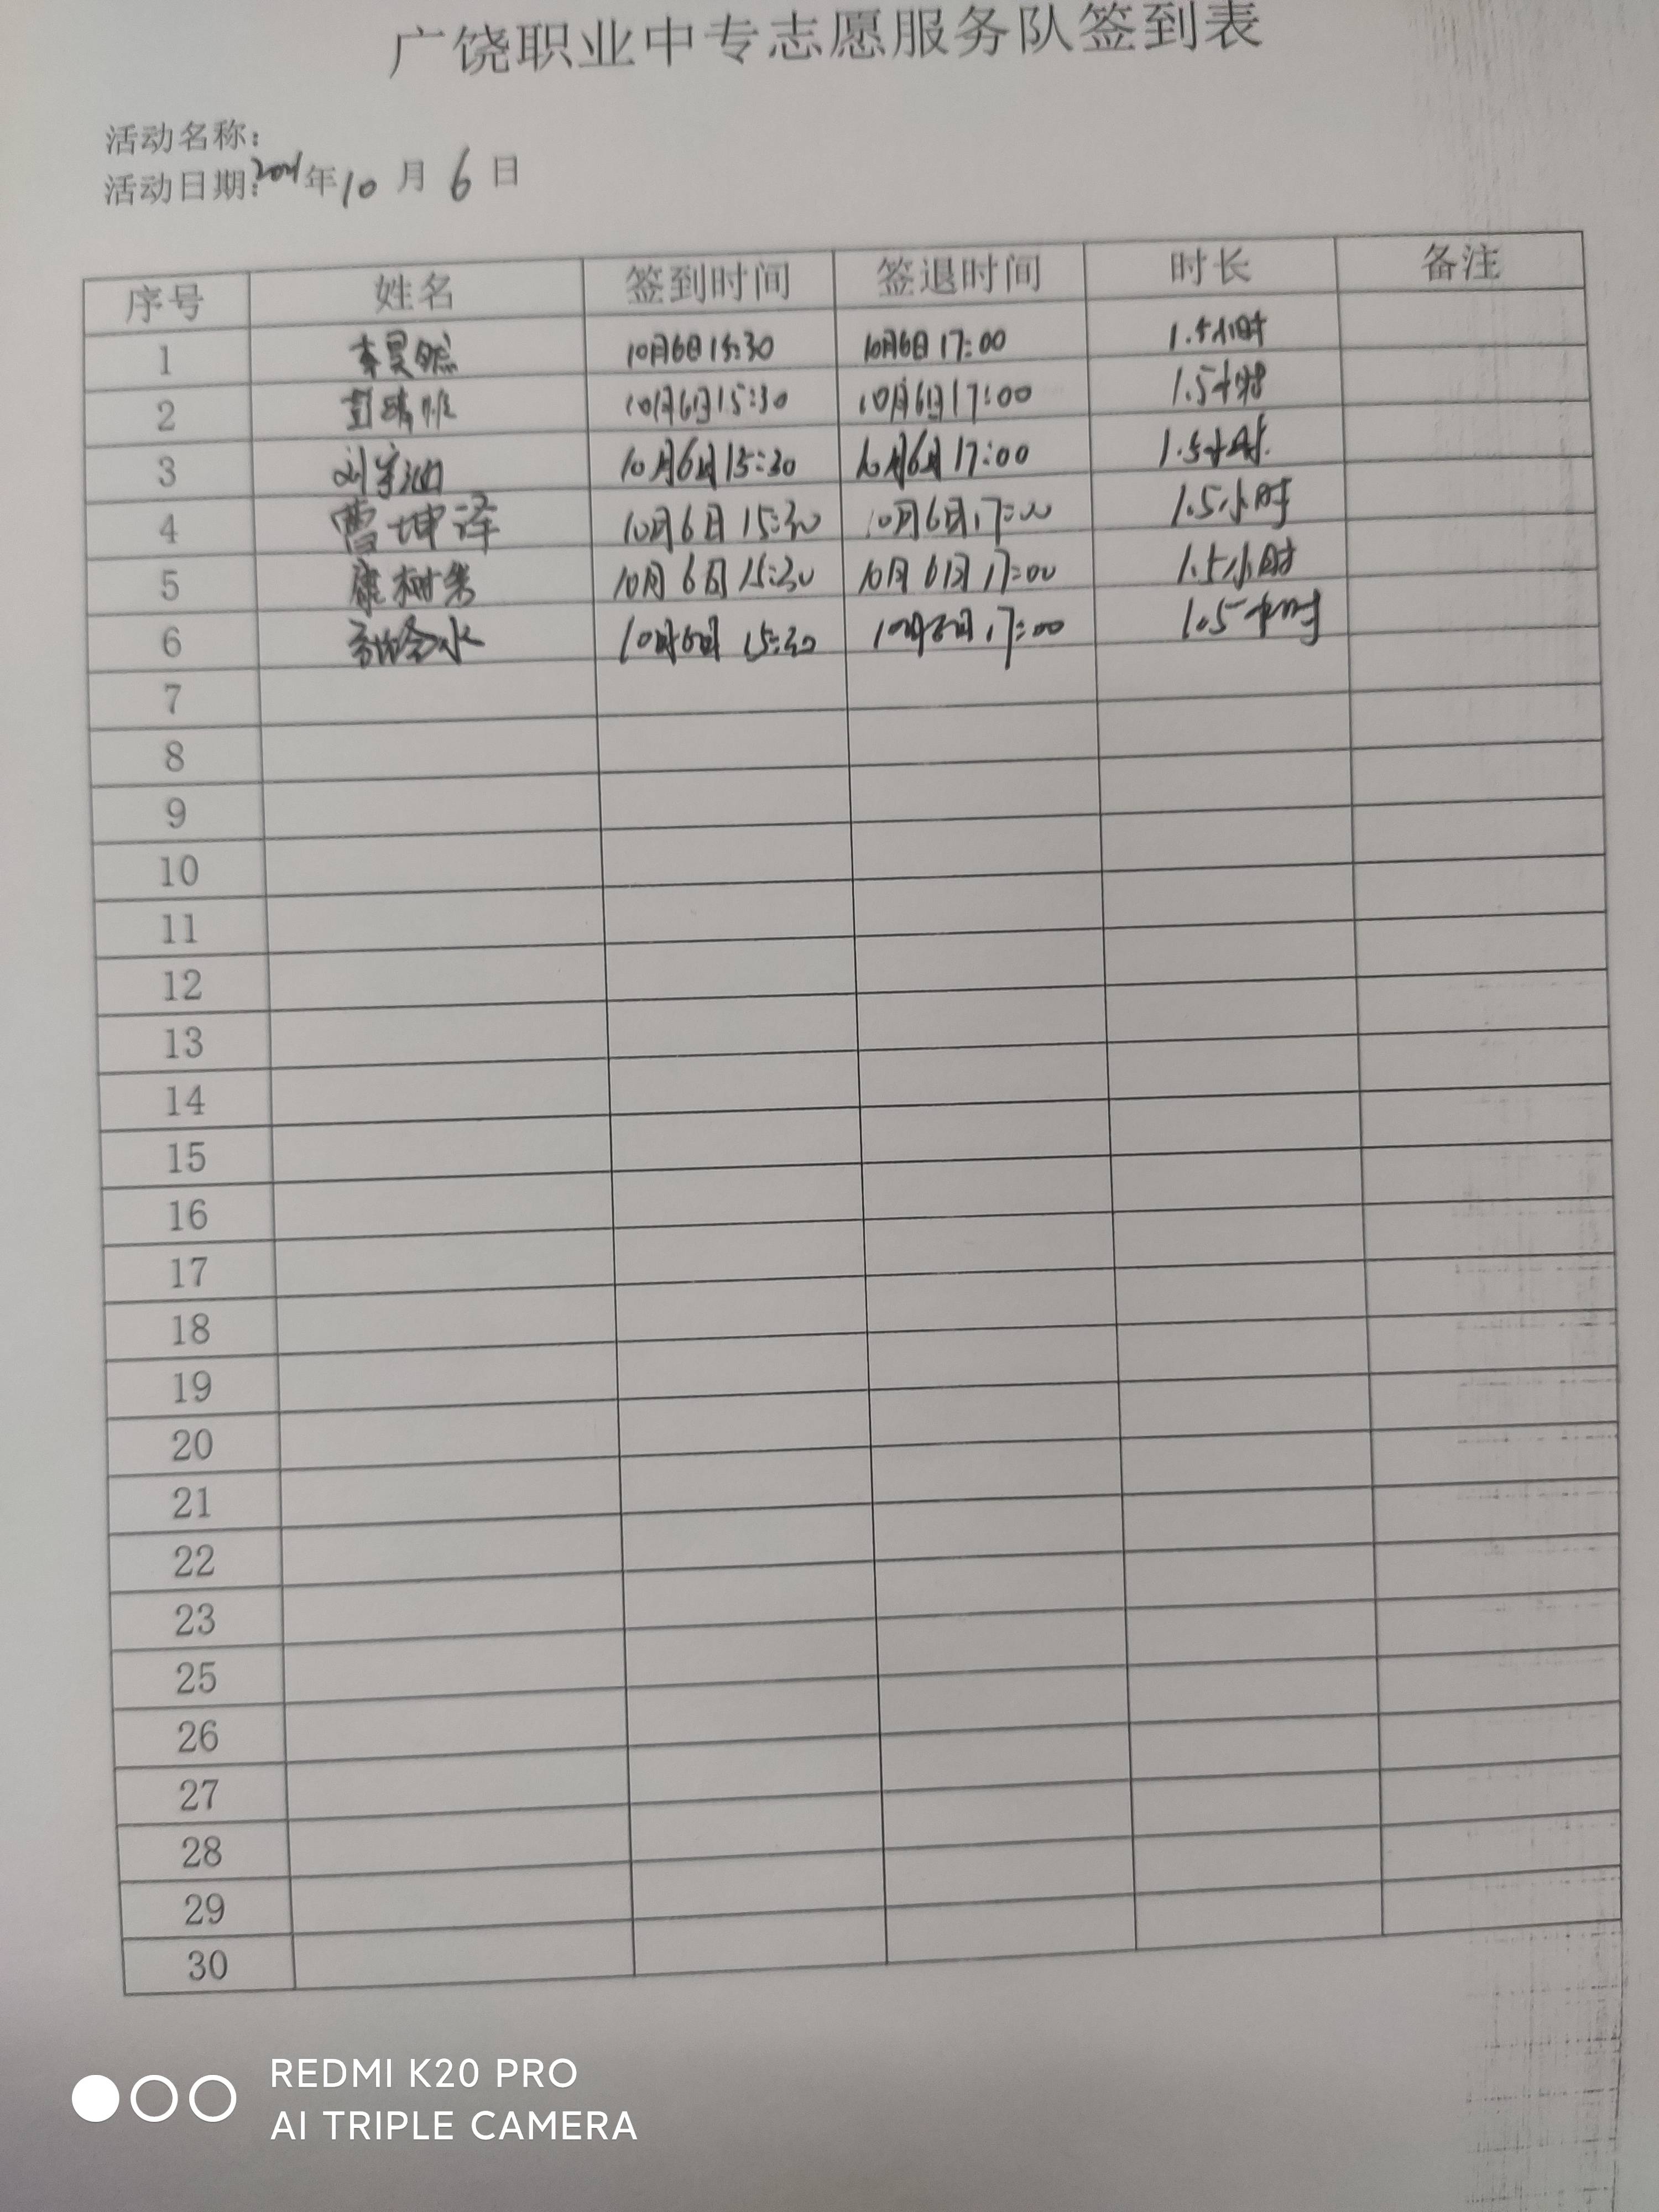 广饶职业中专志愿服务队签到表
活动名称：
活动日期：2021年10月6日
序号 姓名 签到时间 签退时间 时长 备注
1 李昊然 10月6日15:30 10月6日17:00 1.5小时
2 10月6日15:30 10月6日17:00 1.5小时
3 10月6日15:30 10月6日17:00 1.5小时
4 曹坤泽 10月6日15:30 10月6日17:00 1.5小时
5 康树 10月6日15:30 10月6日17:00 1.5小时
6 10月6日15:30 10月6日17:00 1.5小时
7
8
9
10
11
12
13
14
15
16
17
18
19
20
21
22
23
25
26
27
28
29
30
REDMI K20 PRO
AI TRIPLE CAMERA